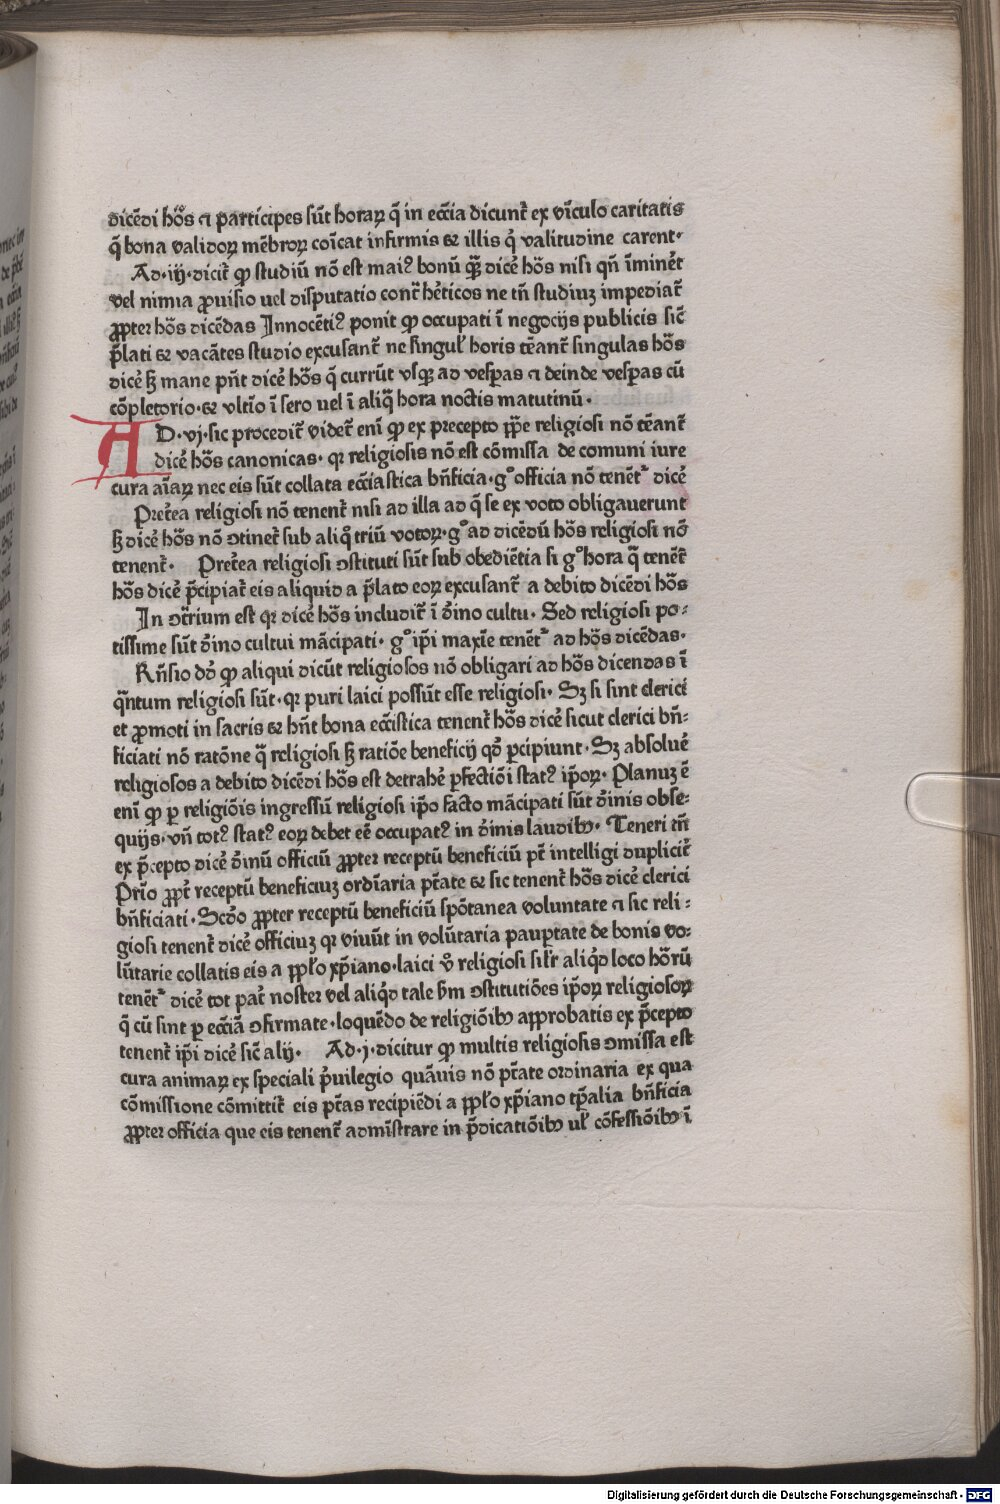 dicēdi hōs ⁊ participes sūt horaꝝ q̄ in ecc̄ia dicunt̄ ex vīculo caritatis
q̄ bona validoꝝ mēbroꝝ coīcat infirmis & illis q̇ valitudine carent·
Ad·iij·dicit̄ ꝙ studiū nō est maiꝰ bonū qꝫ̄ dicē hōs nisi qn̄ īminēt
vel nimia ꝓuisio uel disputatio cont̄ hēticos ne tn̄ studiuꝫ impediat̄
ꝓpter hōs dicēdas Innocētiꝰ ponit ꝙ occupati ī negocijs publicis sic̄
p̄lati & vacātes studio excusant̄ ne singul̄ horis tēant̄ singulas hōs
dicē sꝫ mane pn̄t dicē hōs q̄ currūt vsqꝫ ad vesꝑas ⁊ deinde vesꝑas cū
cōpletorio·& vltīo ī sero uel ī aliq̄ hora noctis matutinū·
AD·vj·sic procedit̄ videt̄ enī ꝙ ex precepto ꝓpe religiosi nō tēant̄
dicē hōs canonicas· qꝛ religiosis nō est cōmissa de comuni iure
cura aīaꝝ nec eis sūt collata ecc̄iastica bn̄ficia·gͦ officia nō tenēt̄ dicē
Pret̄ea religiosi nō tenent̄ nisi ad illa ad q̄ se ex voto obligauerunt
sꝫ dicē hōs nō ꝯtinet̄ sub aliq̄ triū votoꝝ·gͦ ad dicēdū hōs religiosi nō
tenent̄· Pret̄ea religiosi ꝯstituti sūt sub obediētia si gͦ hora q̄ tenēt̄
hōs dicē p̄cipiat̄ eis aliquid a p̄lato eoꝝ excusant̄ a debito dicēdi hōs
In ꝯt̄rium est qꝛ dicē hōs includit̄ ī d̄ino cultu· Sed religiosi po⸗
tissime sūt d̄ino cultui mācipati· gͦ ip̄i maxīe tenēt̄ ad hōs dicēdas·
Rn̄sio dd̄ ꝙ aliqui dicūt religiosos nō obligari ad hōs dicendas ī
q̄ntum religiosi sūt·qꝛ puri laici possūt esse religiosi· Sꝫ si sint clerici
et ꝓmoti in sacris & hn̄t bona ecc̄istica tenent̄ hōs dicē sicut clerici bn̄⸗
ficiati nō ratōne q̄ religiosi sꝫ ratiōe beneficij qd̄ ꝑcipiunt· Sꝫ absoluē
religiosos a debito dicēdi hōs est detrahē ꝑfectiōi statꝰ ip̄oꝝ· Planuꝫ ē
enī ꝙ ꝑ religiōis ingressū religiosi ip̄o facto mācipati sūt d̄inis obse⸗
quijs·vn̄ totꝰ statꝰ eoꝝ debet eē occupatꝰ in d̄inis laudibꝫ· Teneri tn̄
ex p̄cepto dicē d̄inū officiū ꝓpter receptū beneficiū pt̄ intelligi duplicit̄
Prīo ꝓpt̄ receptū beneficiuꝫ ordīaria pt̄ate & sic tenent̄ hōs dicē clerici
bn̄ficiati· Scd̄o ꝓpter receptū beneficiū spōtanea voluntate ⁊ sic reli⸗
giosi tenent̄ dicē officiuꝫ qꝛ viuūt in volūtaria pauꝑtate de bonis vo⸗
lūtarie collatis eis a ꝓpl̄o xp̄iano·laici v̄o religiosi sil̄r aliqd̄ loco hōrū
tenēt̄ dicē tot pat̄ noster vel aliqd̄ tale ẜm ꝯstitutiōes ip̄oꝝ religiosoꝝ
q̄ cū sint ꝑ ecc̄iā ꝯfirmate·loquēdo de religiōibꝫ approbatis ex p̄cepto
tenent̄ ip̄i dicē sic̄ alij· Ad·j·dicitur ꝙ multis religiosis ꝯmissa est
cura animaꝝ ex speciali p̄uilegio quāuis nō pt̄ate ordinaria ex qua
cōmissione cōmittit̄ eis pt̄as recipiēdi a ꝓpl̄o xp̄iano tp̄alia bn̄ficia
ꝓpter officia que eis tenent̄ admīstrare in p̄dicatiōibꝫ ul̄ cōfessiōibꝫ ī
Digitalisierung gefördert durch die Deutsche Forschungsgemeinschaft - DFG